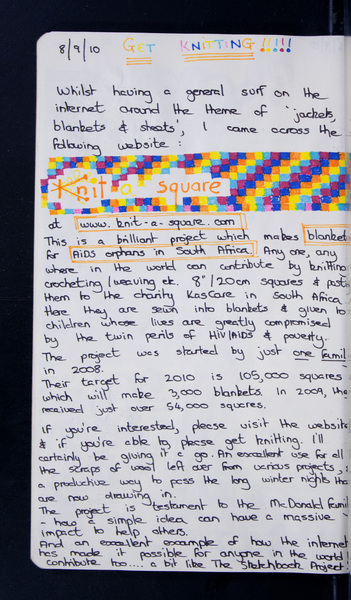 8/9/10 GET KNITTING !!!!!
Whilst having a general surf on the
internet around the theme of 'jackets,
blankets & sheets', I came across the
following website :
Knit-a-square
at www.knit-a-square.com
This is a brilliant project which makes blanket
for AiDS orphans in South Africa. Any one, any
where in the world can contribute by knitting
crocheting/weaving etc. 8"/20cm squares & post
them to the charity KasCare in South Africa
Here they are sewn into blankets & given to
children whose lives are greatly compromised
by the twin perils of HIV/AIDS & poverty.
The project was started by just one famil
in 2008.
Their target for 2010 is 105,000 squares
which will make 3,000 blankets. In 2009, the
received just over 54,000 squares.
If you're interested, please visit the website
& if you're able to please get knitting. I'll
certainly be giving it a go. An excellent use for all
the scraps of wool left over from various projects, :
a productive way to pass the long winter nights tha
are now drawing in.
The project is testament to the McDonald famil
- how a simple idea can have a massive
impact to help others.
And an excellent example of how the internet
has made it possible for anyone in the world
contribute too.... a bit like The Sketchbook Project!